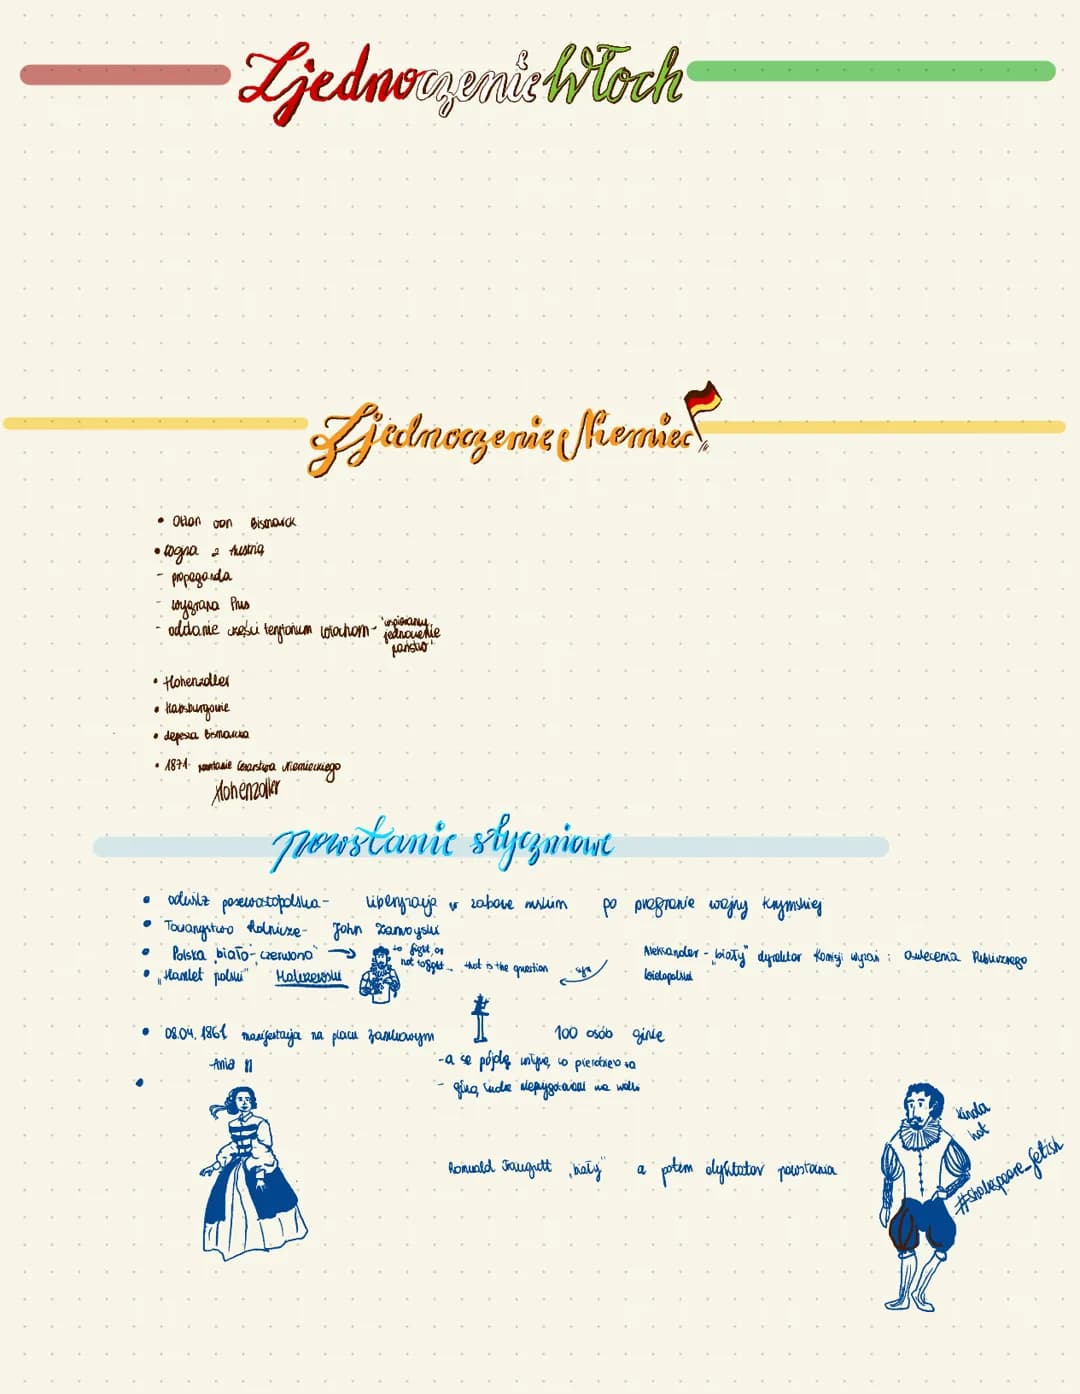 Zjednoczenie Włoch
Zjednoczenie Niemiec
• Otton von Bismarck
• wojna z Austrią
- propaganda
- wygrana Prus
- oddanie części terytorium Włochom- "wspieramy jednoczenie państw"
• Hohenzoller
• Habsburgowie
• depesza Bismarcka
• 1871- powstanie Cesarstwa Niemieckiego
Hohenzoller
powstanie styczniowe
• odwilż posewastopolska- liberyzacja w zaborze ruskim po przegranie wojny krymskiej
• Towarzystwo Rolnicze- John Zamoyski
• Polska "biało-czerwona"
to fight or not to fight... that is the question
syn
Aleksander - "biały" dyrektor Komisji wyznań i oświecenia Publicznego
Wielopolski
• "Hamlet polski"
• 08.04.1861 manifestacja na placu zamkowym
100 osób ginie
-Ania
-a se pójdę
- giną ludzie nieprzygotowani na walki
•
Romuald Traugutt "biały" a potem dyktator powstania
kinda hot
#shakespeare_fetish